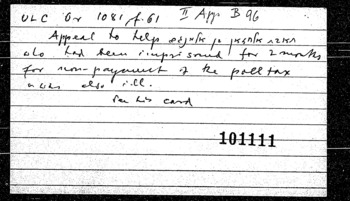 ULC Or 1081 f. 61 II App B 96
Appeal to help
who had been imprisoned for 2 months
for non-payment of the poll tax
& was also ill.
See his card
101111